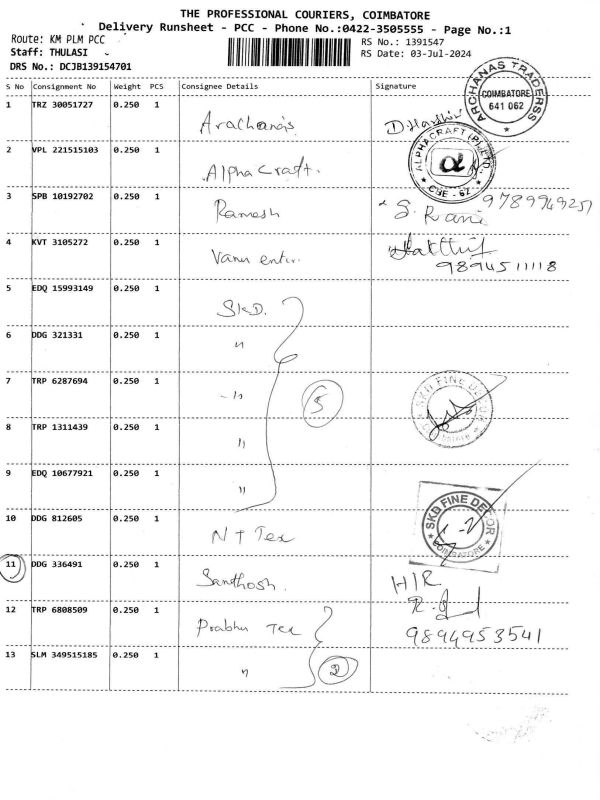 THE PROFESSIONAL COURIERS, COIMBATORE
Delivery Runsheet - PCC - Phone No.:0422-3505555 - Page No.:1
Route: KM PLM PCC
RS No.: 1391547
Staff: THULASI
RS Date: 03-Jul-2024
DRS No.: DCJB139154701
S No Consignment No Weight PCS Consignee Details Signature
1 TRZ 30051727 0.250 1 Arachana's
ARCHANAS TRADERSS COIMBATORE 641 062
2 VPL 221515103 0.250 1 Alpha Craft.
ALPHACRAFT (P) LTD. α CBE - 62
3 SPB 10192702 0.250 1 Ramesh S. Rani 9789949251
4 KVT 3105272 0.250 1 9894511118
5 EDQ 15993149 0.250 1 SKD.
6 DDG 321331 0.250 1 "
7 TRP 6287694 0.250 1 -"- 5
SKD FINE DECOR
8 TRP 1311439 0.250 1 "
9 EDQ 10677921 0.250 1 "
10 DDG 812605 0.250 1 N T Tex
SKD FINE DECOR COIMBATORE
11 DDG 336491 0.250 1 Santhosh. H/R
12 TRP 6808509 0.250 1 Prabhu Tex 9894953541
13 SLM 349515185 0.250 1 " 2